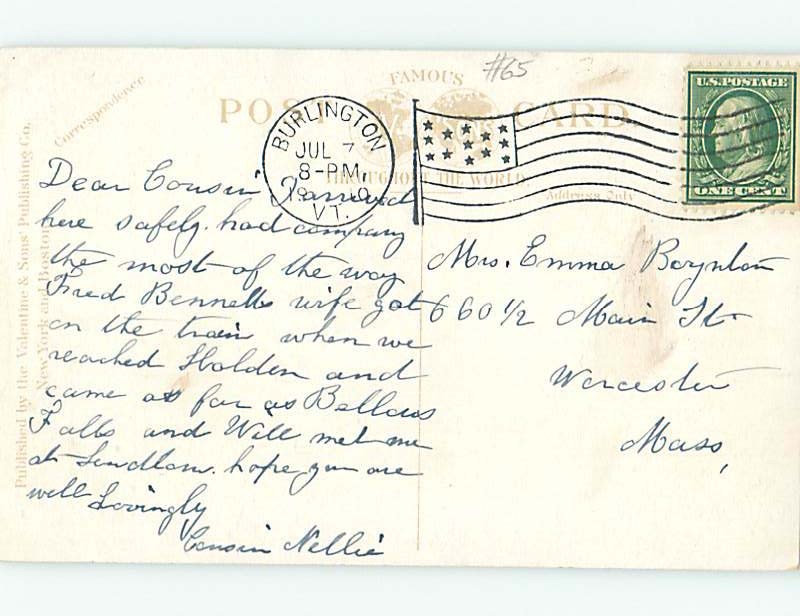 #65
FAMOUS
POST CARD
THROUGHOUT THE WORLD
Correspondence
Address Only
Published by the Valentine & Sons' Publishing Co.,
New York and Boston
BURLINGTON
JUL 7
8-PM
19
VT.
U.S. POSTAGE
ONE CENT
Dear Cousin I arrived
here safely. had company
the most of the way
Fred Bennetts wife got
on the train when we
reached Holden and
came as far as Bellows
Falls and Will met me
at hope you are
well Lovingly
Cousin Nellie
Mrs. Emma Boynton
660 1/2 Main St
Worcester
Mass,